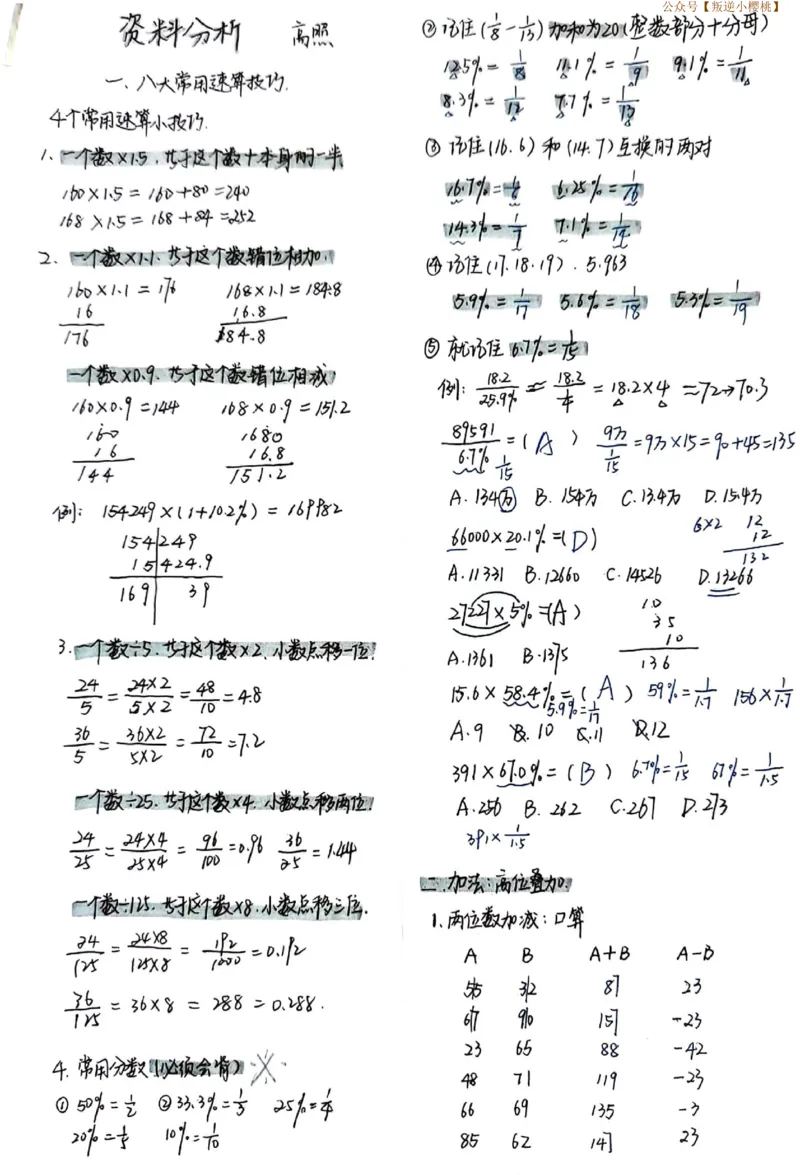 公众号【叛逆小樱桃】
资料分析 高照
一、八大常用速算技巧.
4个常用速算小技巧.
1、一个数×1.5,等于这个数+本身的一半
160×1.5=160+80=240
168×1.5=168+84=252
2、一个数×1.1,等于这个数错位相加.
160×1.1=176 168×1.1=184.8
16 16.8
176 184.8
一个数×0.9,等于这个数错位相减.
160×0.9=144 168×0.9=151.2
160 1680
16 16.8
144 151.2
例: 154249×(1+10.2%)=169982
154|249
15|424.9
169| 39
3.一个数÷5,等于这个数×2,小数点移一位.
24/5=24×2/5×2=48/10=4.8
36/5=36×2/5×2=72/10=7.2
一个数÷25,等于这个数×4,小数点移两位.
24/25=24×4/25×4=96/100=0.96 36/25=1.44
一个数÷125,等于这个数×8,小数点移三位.
24/125=24×8/125×8=192/1000=0.192
36/125=36×8=288=0.288.
4.常用分数(必须会背)
①50%=1/2 ②33.3%=1/3 25%=1/4
20%=1/5 10%=1/10
②记住(1/8-1/13)加和为20(整数部分+分母)
12.5%=1/8 11.1%=1/9 9.1%=1/11
8.3%=1/12 7.7%=1/13
③记住(16.6)和(14.7)互换的两对
16.7%=1/6 6.25%=1/16
14.3%=1/7 7.1%=1/14
④记住(17.18.19).5.963
5.9%=1/17 5.6%=1/18 5.3%=1/19
⑤就记住6.7%=1/15
例: 18.2/25.9%≈18.2/(1/4)=18.2×4≈72→70.3
89591/6.7%=(A) 1/15 9万/(1/15)=9万×15=90+45=135
A.134万 B.154万 C.13.4万 D.15.4万
66000×20.1%=(D) 6×2 12
12
132
A.11331 B.12660 C.14526 D.13266
27227×5%=(A) 10
35
10
136
A.1361 B.1375
15.6×58.4%=(A) 59%=1/1.7 156×1/1.7
5.9%=1/17
A.9 B.10 C.11 D.12
391×67.0%=(B) 6.7%=1/15 67%=1/1.5
A.256 B.262 C.267 D.273
391×1/1.5
二.加法:高位叠加.
1.两位数加减:口算
A B A+B A-B
55 32 87 23
67 90 157 -23
23 65 88 -42
48 71 119 -23
66 69 135 -3
85 62 147 23